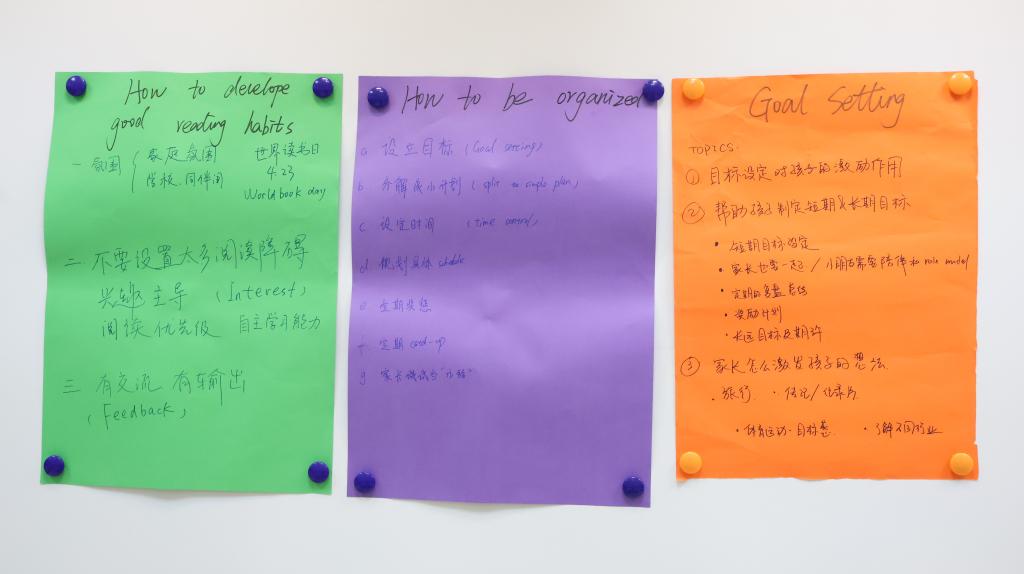 How to develope
good reading habits
一 氛围 家庭氛围 世界读书日
学校、同伴间 4.23
World book day
二 不要设置太多阅读障碍
兴趣主导 (Interest)
阅读优先级 自主学习能力
三 有交流 有输出
(Feedback)
How to be organized
a. 设立目标 (Goal setting)
b. 分解成小计划 (split simple plan)
c. 设定时间 (time control)
d. 规划具体
e. 定期奖惩
f. 定期
g 家长
Goal Setting
TOPICS:
① 目标设定对孩子的激励作用
② 帮助孩子制定短期&长期目标
• 短期目标设定
• 家长也要一起/小朋友需要陪伴和role model
• 定期的复盘总结
• 奖励计划
• 长远目标及期许
③ 家长怎么激发孩子的想法
• 旅行 • 传记/纪录片
• 体育运动-目标感 • 了解不同行业